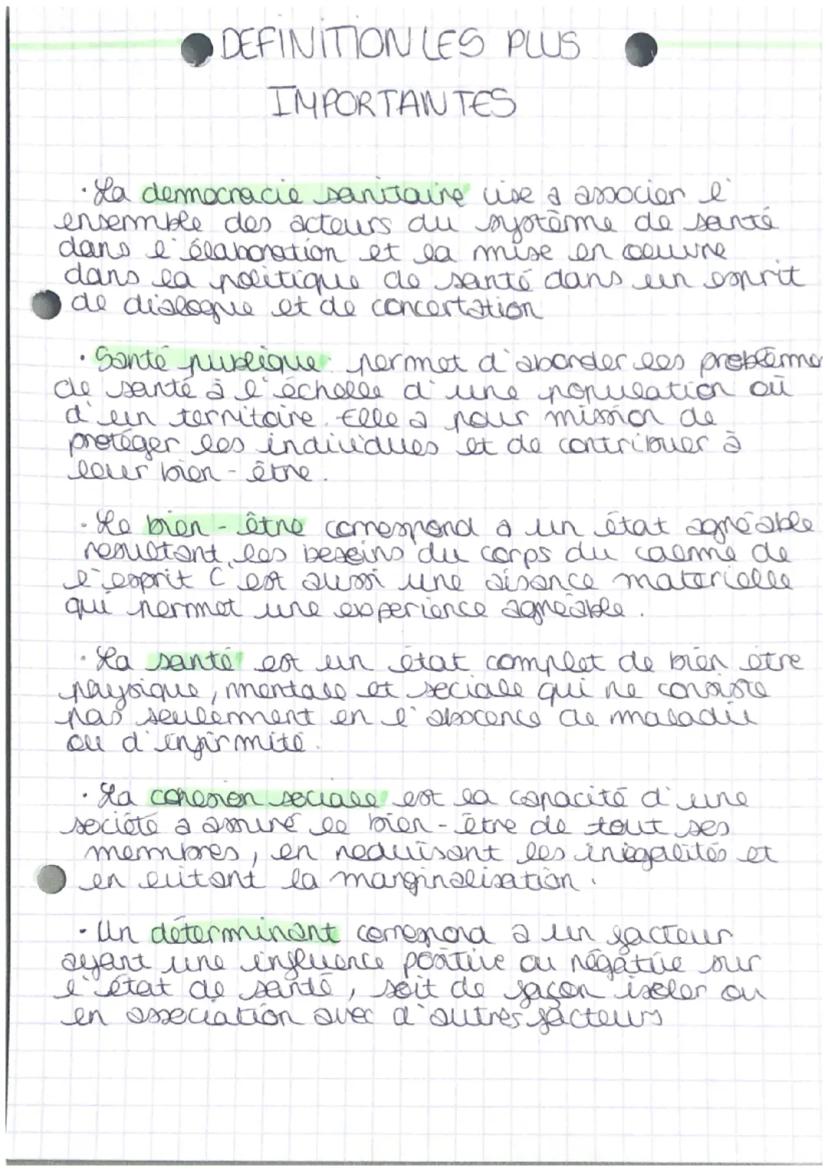 DEFINITION LES PLUS
IMPORTANTES
· La democracie sanitaire vise a associer l'
ensemble des acteurs du système de santé
dans l'élaboration et la mise en oeuvre
dans la politique de santé dans un esprit
de dialogue et de concertation
· Santé publique permet d'aborder les problème
de santé à l'échelle d'une population où
d'un territoire. Elle a pour mission de
protéger les individues et de contribuer à
leur bien-être.
· Le bien-être correspond a un état agréable
resultant les besoins du corps du calme de
l'esprit C'est aussi une aisance materielle
qui permet une experience agréable.
· La santé est un état complet de bien être
physique, mentale et sociale qui ne consiste
pas seulement en l'abscence de maladie
ou d'infirmité.
· La cohesion sociale est la capacité d'une
société a assuré le bien-être de tout ses
membres, en reduisant les inégalités et
en evitant la marginalisation.
· Un déterminant correspond a un facteur
ayant une influence positive ou négative sur
l'état de santé, soit de façon isoler ou
en association avec d'autres facteurs